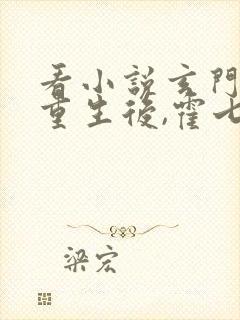 看小說玄門
重生後,霍七
梁宏